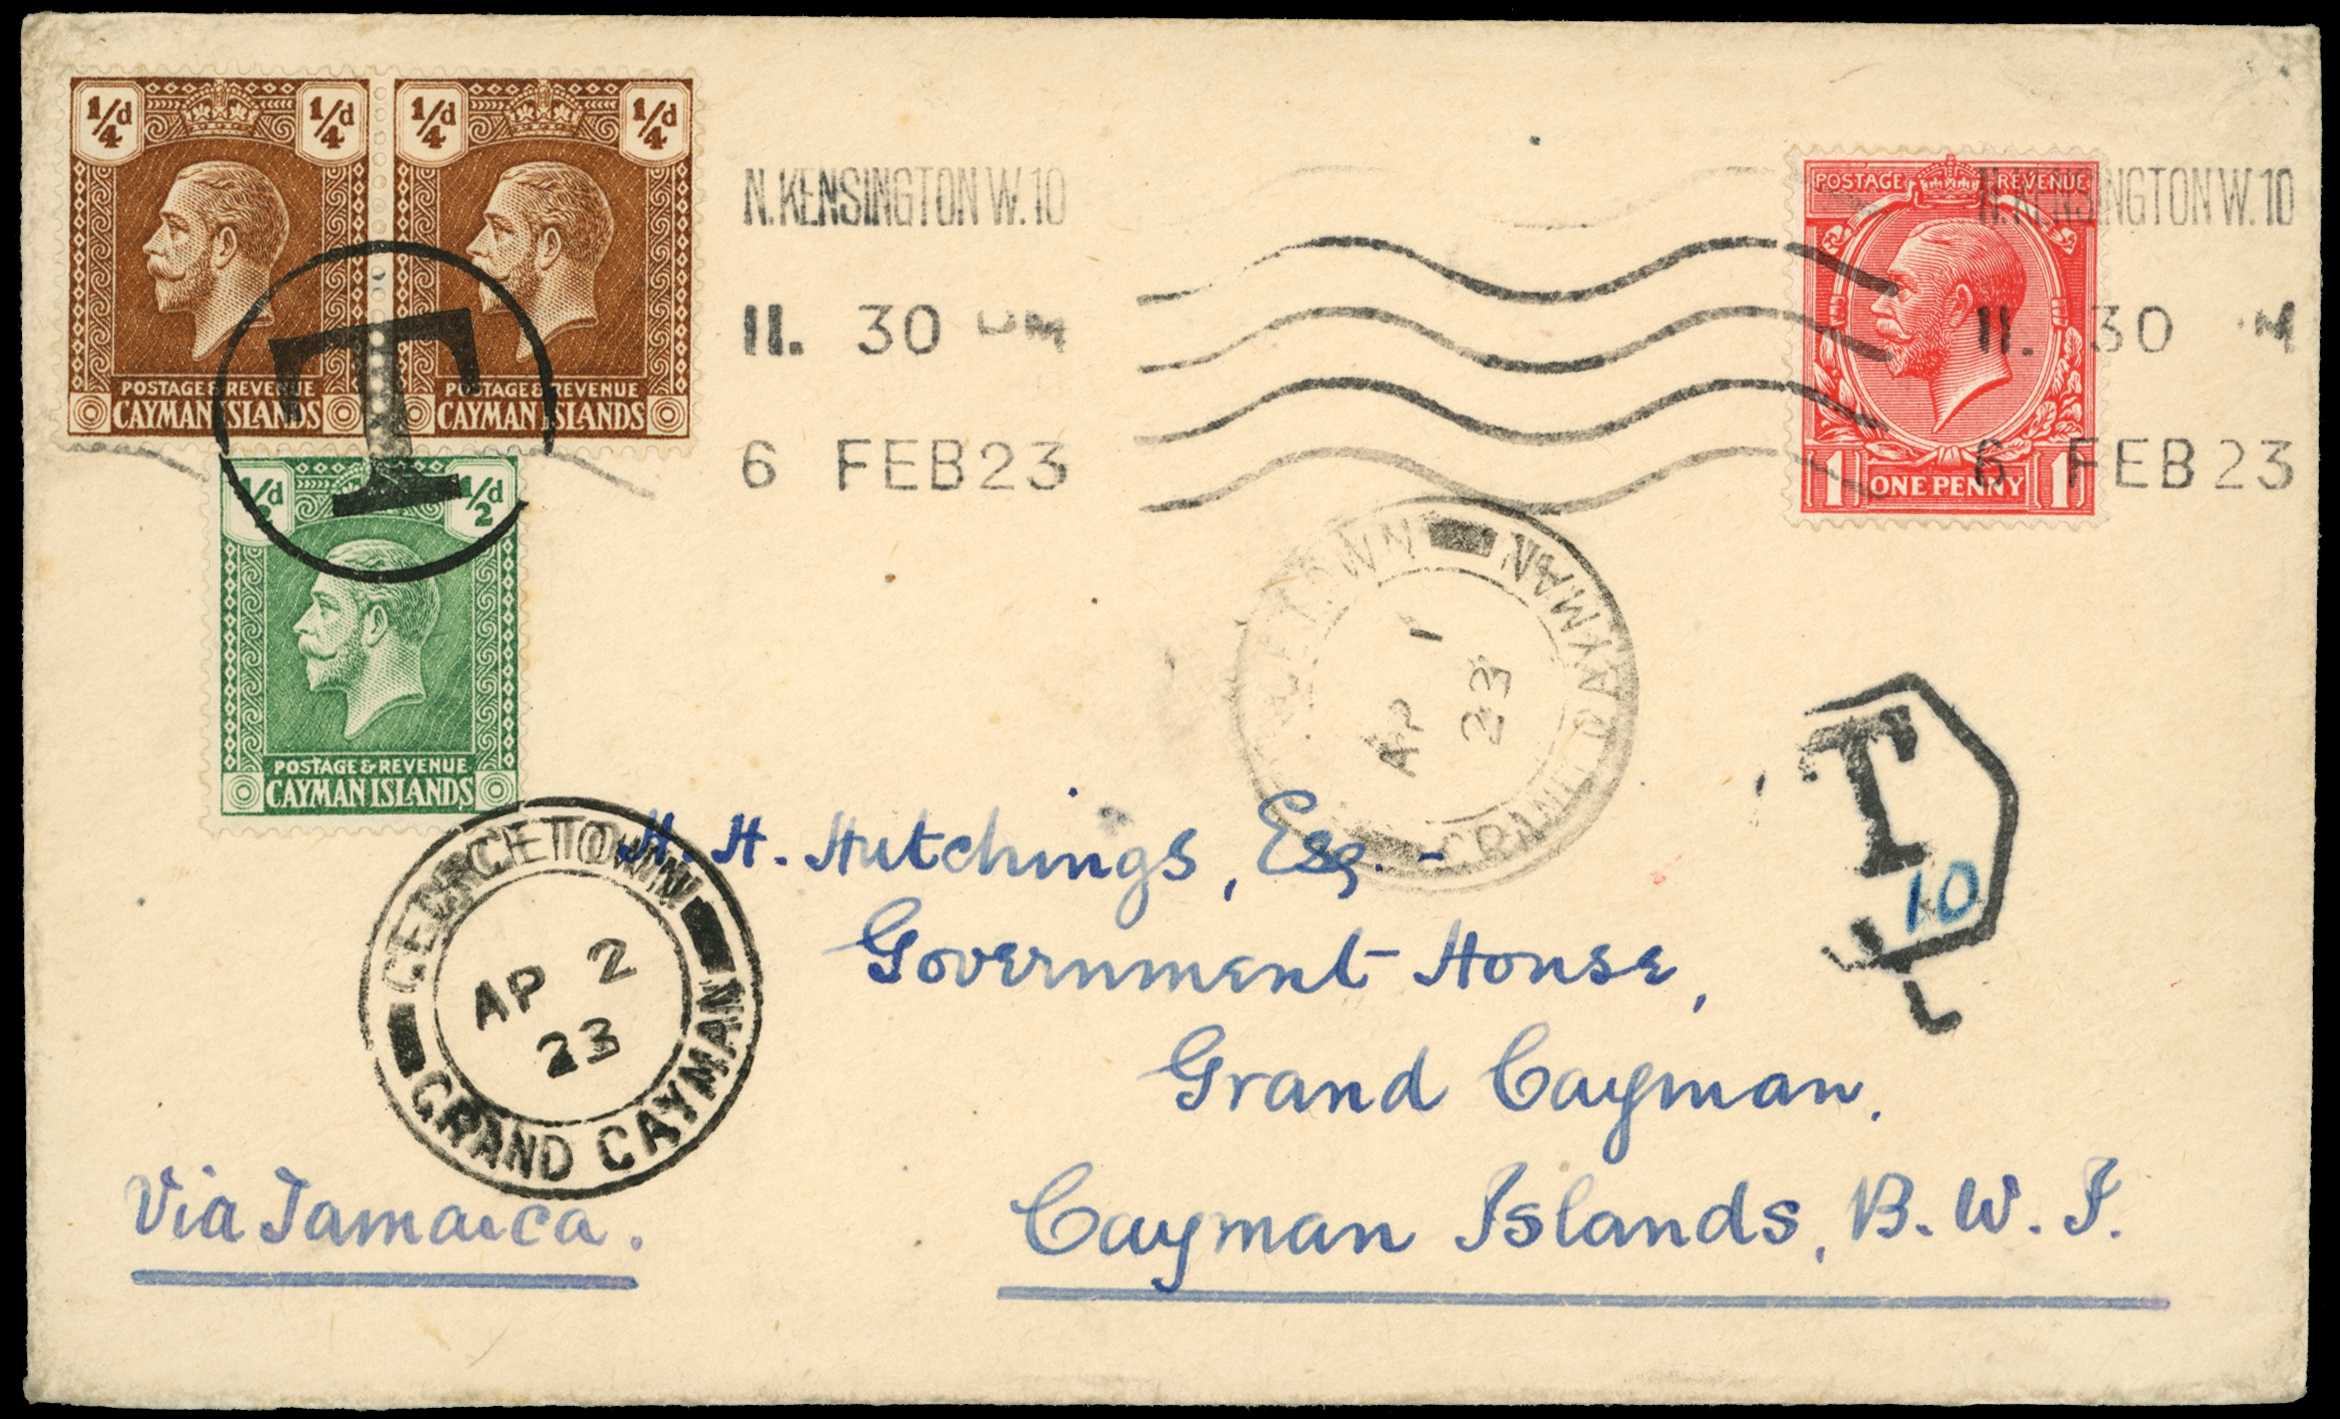 1/4d 1/4d 1/4d 1/4d
POSTAGE & REVENUE POSTAGE & REVENUE
CAYMAN ISLANDS CAYMAN ISLANDS
T
1/2d 1/2d
POSTAGE & REVENUE
CAYMAN ISLANDS
N. KENSINGTON W. 10
11. 30 PM
6 FEB 23
POSTAGE REVENUE
1 ONE PENNY 1
N. KENSINGTON W. 10
11. 30 M
6 FEB 23
GEORGETOWN
AP 1
23
GRAND CAYMAN
T
10
GEORGETOWN
AP 2
23
GRAND CAYMAN
H. H. Hutchings, Esq. -
Government House,
Grand Cayman.
Cayman Islands, B. W. I.
Via Jamaica.